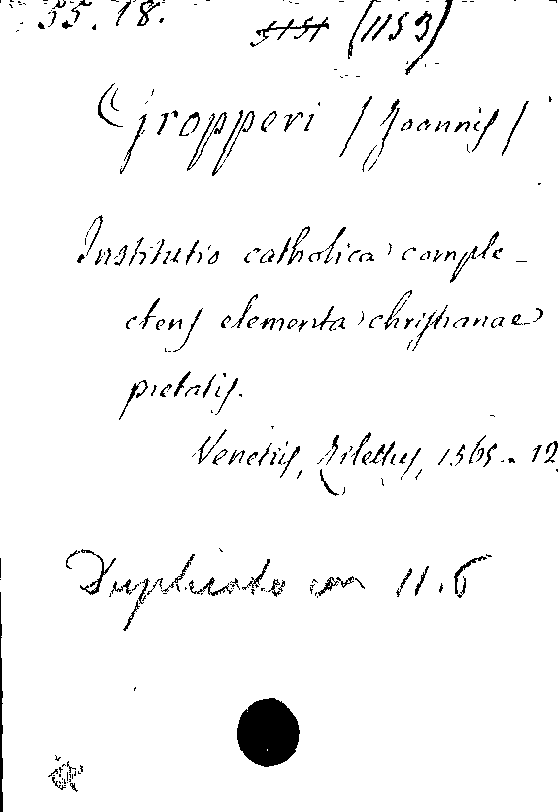 55. 18.
5151 (1153)
Gropperi (Joannis)
Institutio catholica comple-
ctens elementa christianae
pietatis.
Venetiis, Zilettus, 1565. 12
Duplicato con 11.6